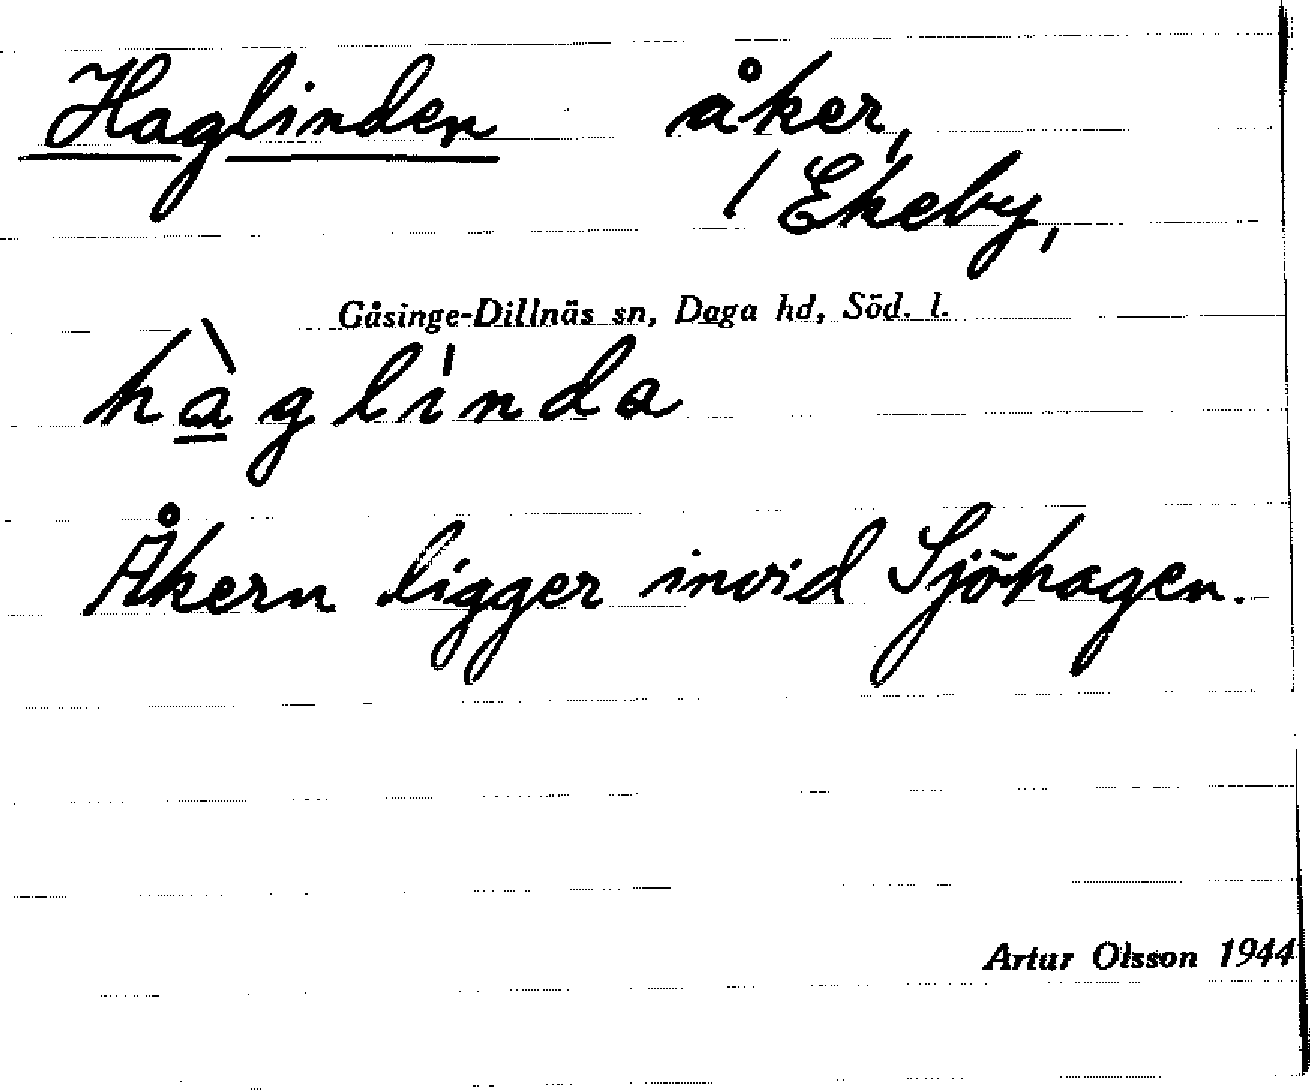 Haglinden åker,
/ Ekeby,
Gåsinge-Dillnäs sn, Daga hd, Söd. l.
hàglinda
Åkern ligger invid Sjöhagen.
Artur Olsson 1944